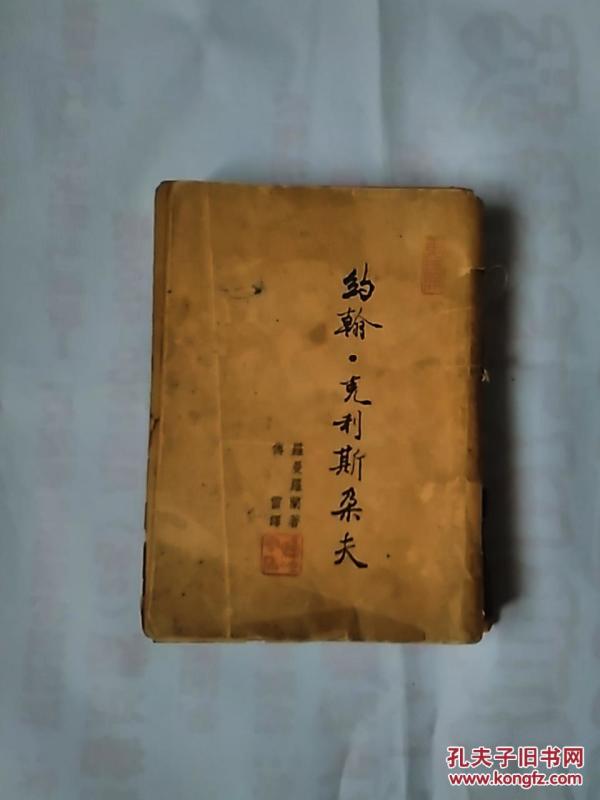 約翰·克利斯朵夫
羅曼羅蘭著
傅雷譯
孔夫子旧书网
www.kongfz.com